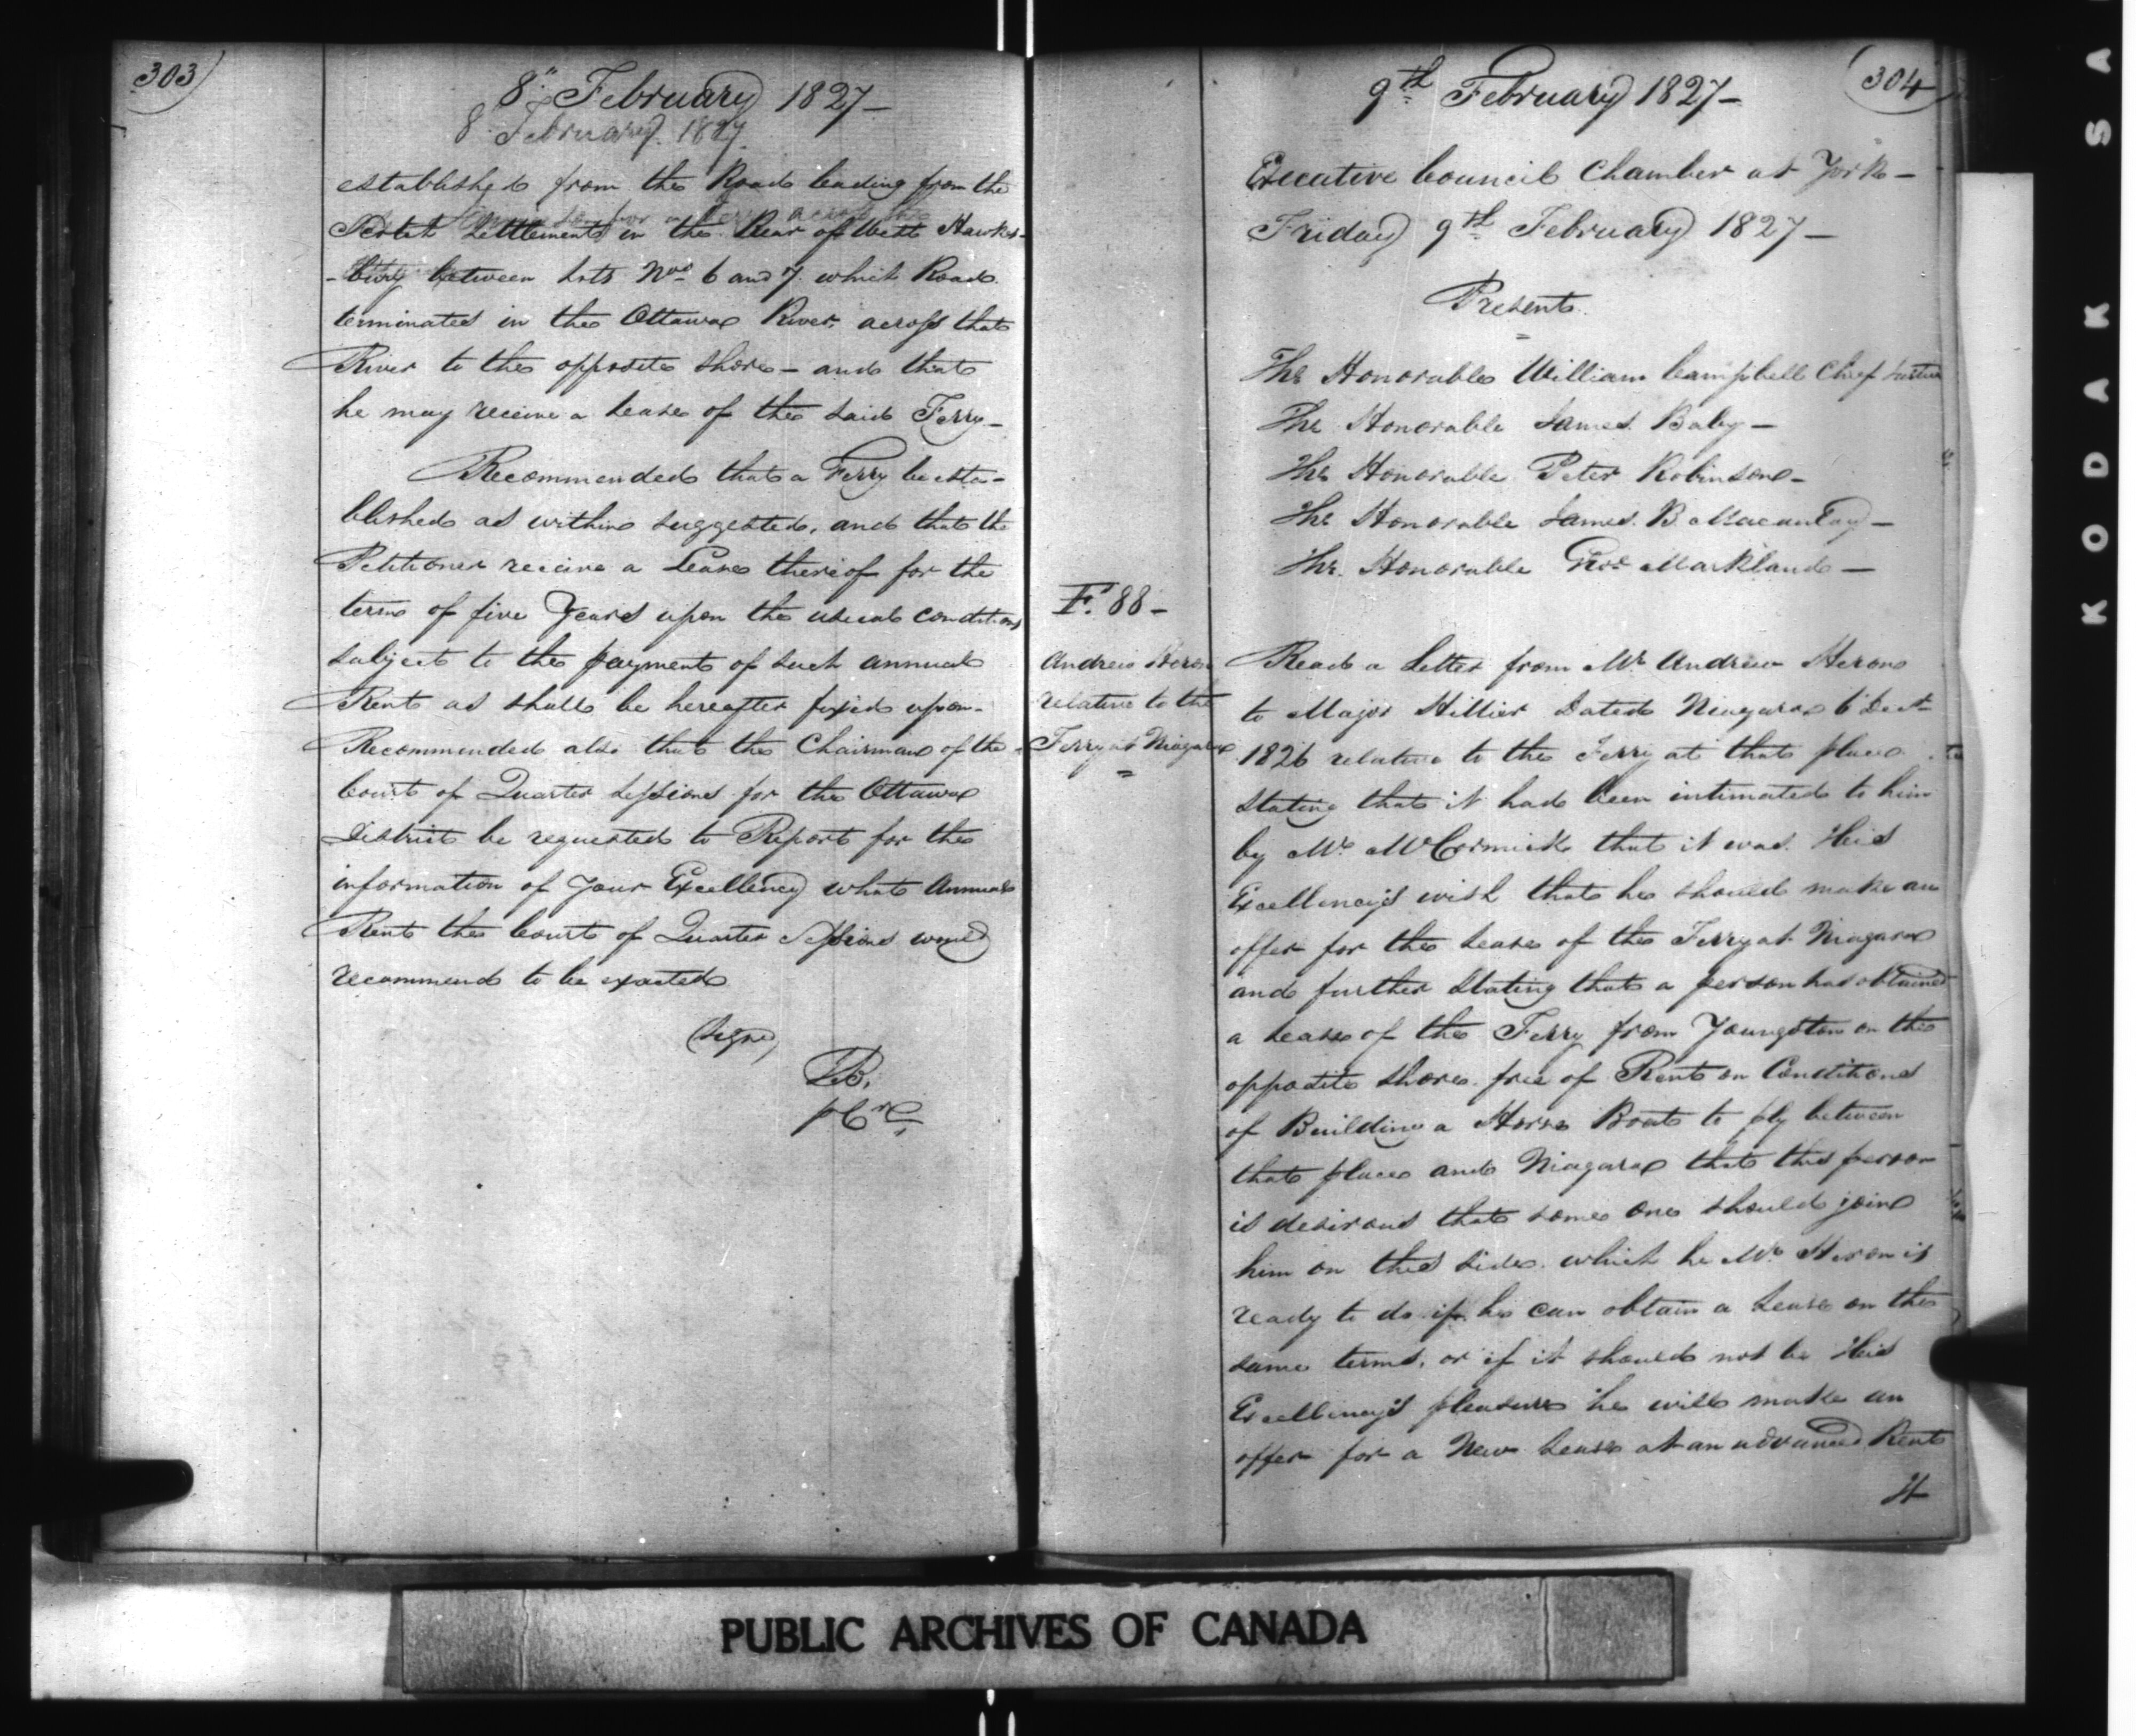 303
8" February 1827 —
8 February 1827
established from the Road leading from the
Scotch Settlements in the Rear of West Hawkes-
-bury between Lots Nos 6 and 7 which Road
terminates in the Ottawa River, across that
River to the opposite shore — and that
he may receive a Lease of the said Ferry —
Recommended that a Ferry be esta-
blished as within suggested, and that the
Petitioner receive a Lease thereof for the
term of five Years upon the usual conditions
subject to the payment of such annual
Rent as shall be hereafter fixed upon —
Recommended also that the Chairman of the
Court of Quarter Sessions for the Ottawa
District be requested to Report for the
information of Your Excellency what Annual
Rent the Court of Quarter Sessions would
recommend to be exacted
(Signed)
304
9th February 1827 —
Executive Council Chamber at York —
Friday 9th February 1827 —
Present
The Honorable William Campbell Chief Justice
The Honorable James Baby —
The Honorable Peter Robinson —
The Honorable James B. Macaulay —
The Honorable Geo: Markland —
F. 88 —
Andrew Heron
relative to the
Ferry at Niagara
Read a Letter from Mr Andrew Heron
to Major Hillier Dated Niagara 6 Decr
1826 relative to the Ferry at that place
stating that it had been intimated to him
by Mr McCormick that it was His
Excellency's wish that he should make an
offer for the Lease of the Ferry at Niagara
and further stating that a person has obtained
a Lease of the Ferry from Youngston on the
opposite shore free of Rent on Conditions
of Building a Horse Boat to ply between
that place and Niagara that this person
is desirous that some one should join
him on this side which he Mr Heron is
ready to do if he can obtain a Lease on the
same terms, or if it should not be His
Excellency's pleasure he will make an
offer for a New Lease at an advanced Rent
PUBLIC ARCHIVES OF CANADA
KODAK SA